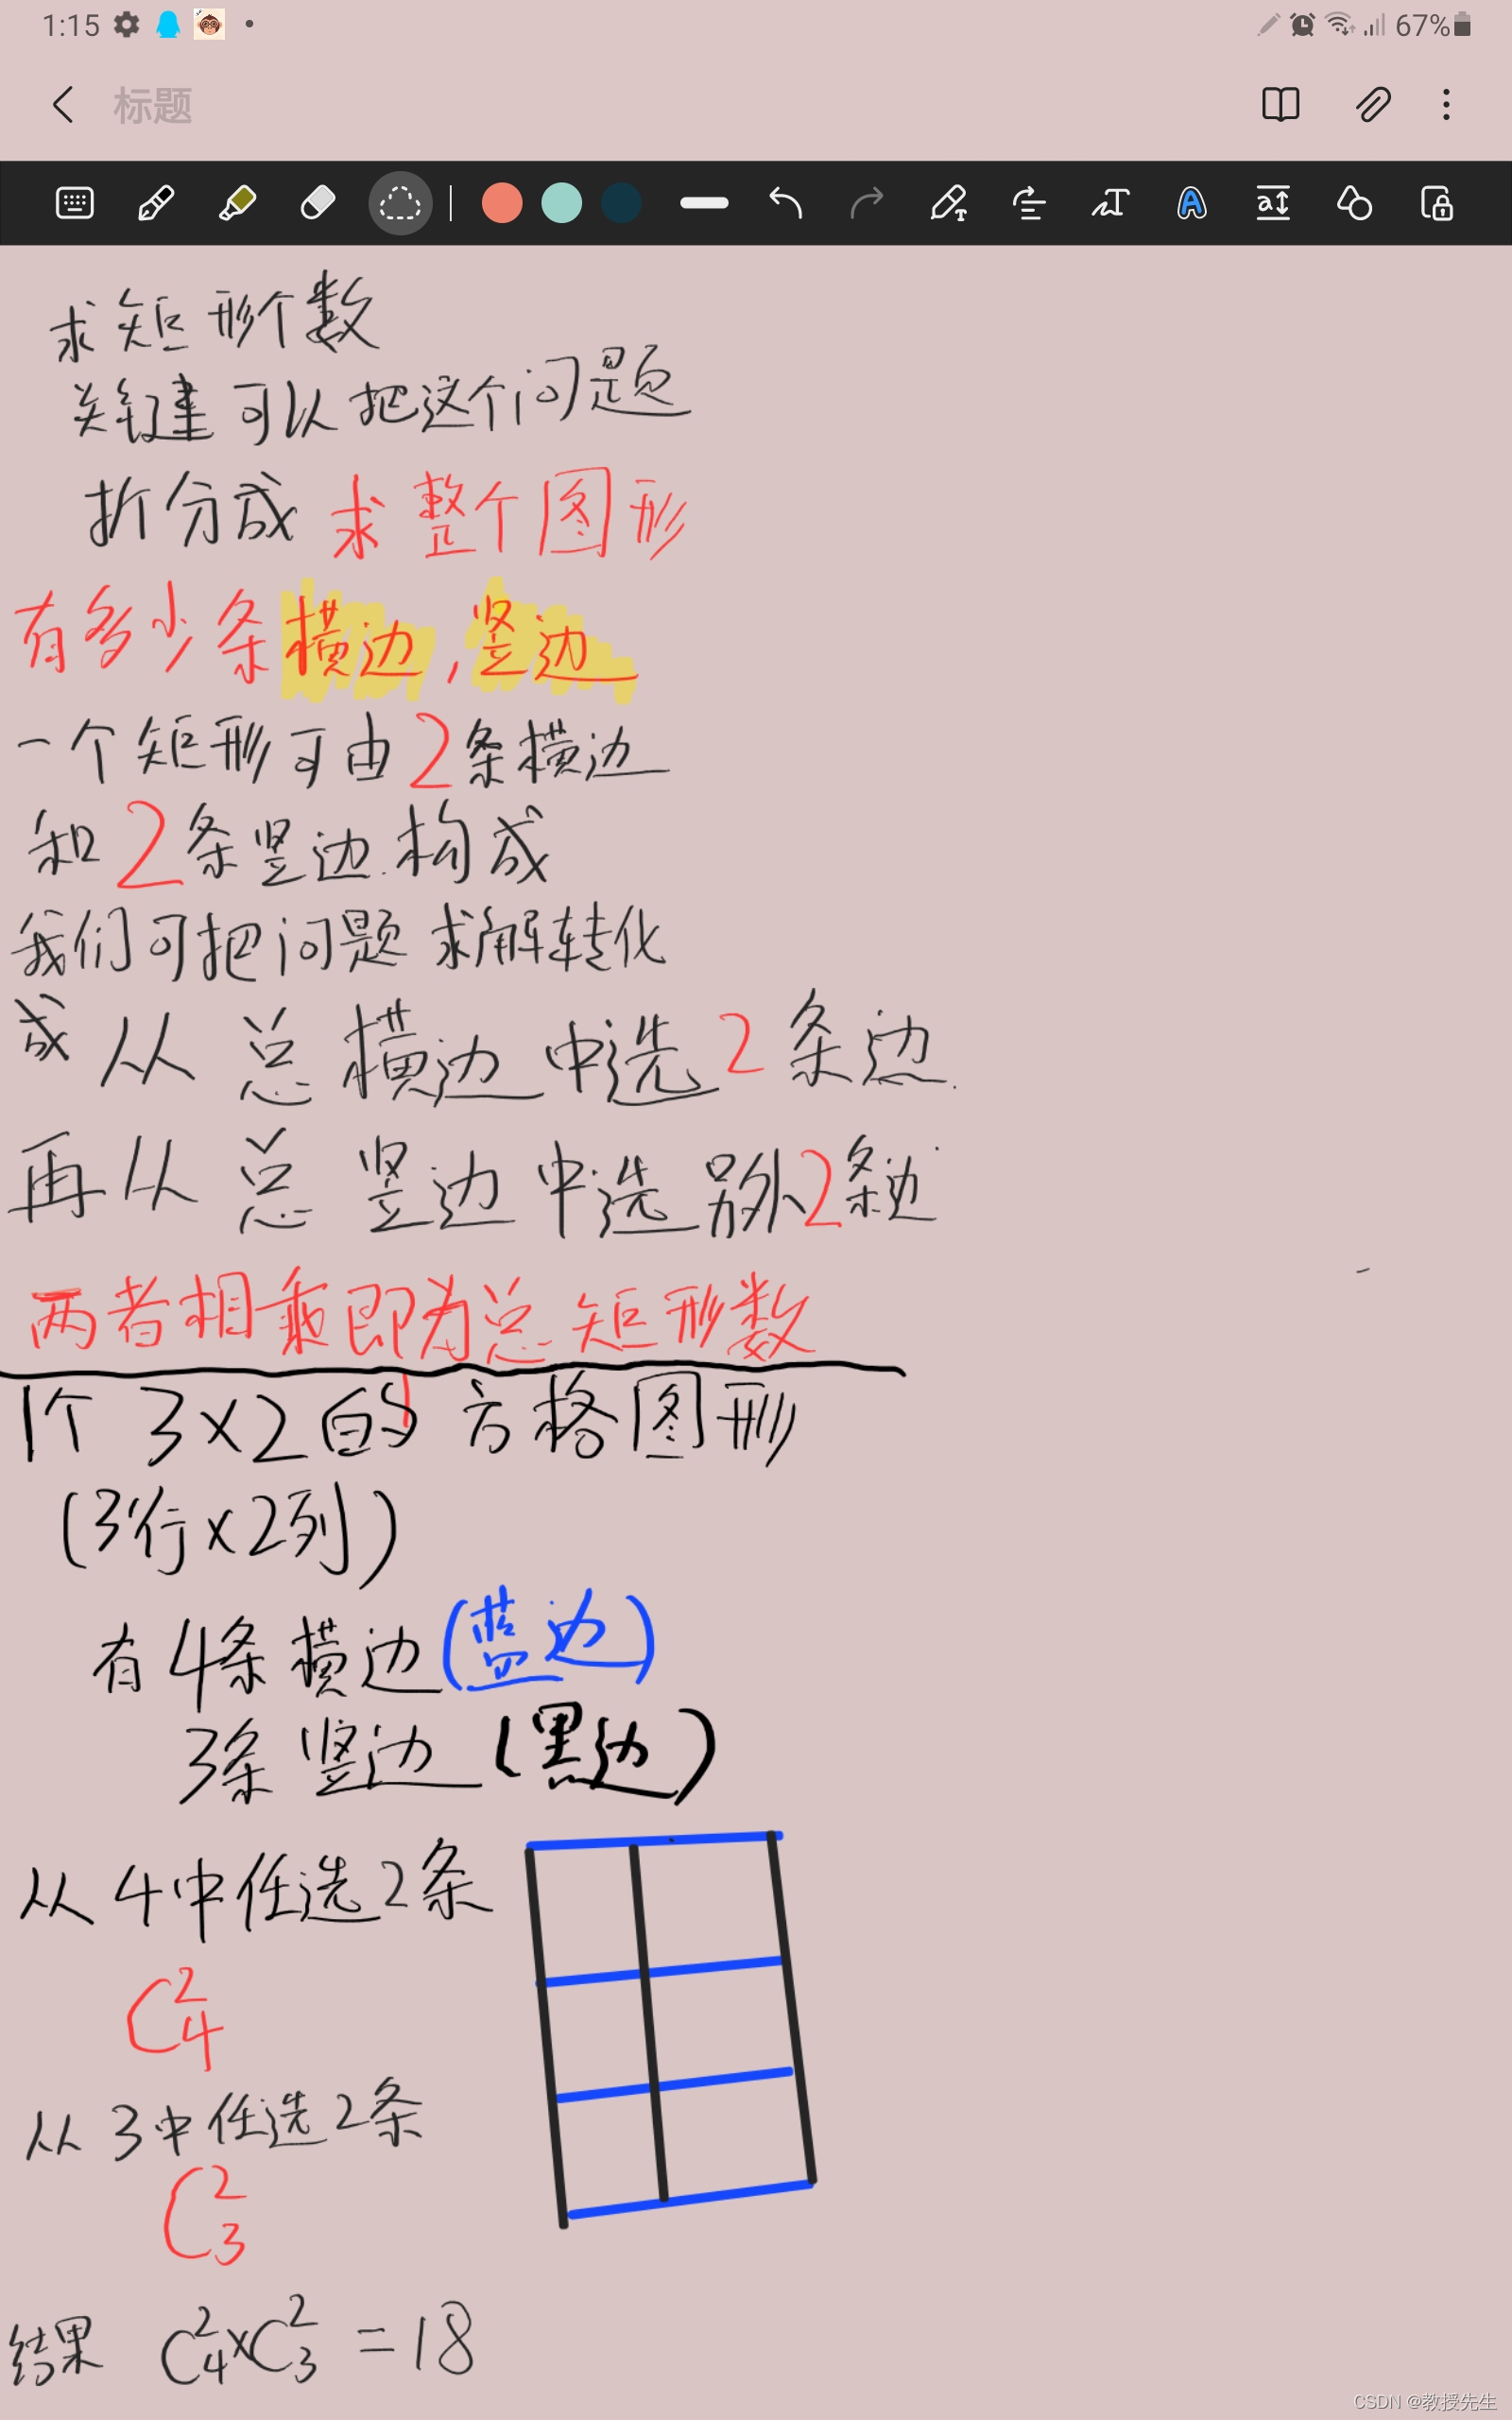 1:15 67%
标题
求矩形个数
关键可以把这个问题
折分成求整个图形
有多少条横边,竖边
一个矩形可由2条横边
和2条竖边.构成
我们可把问题求解转化
成从总横边中选2条边.
再从总竖边中选另外2条边
两者相乘即为总矩形数
1个3×2的方格图形
(3行×2列)
有4条横边(蓝边)
3条竖边(黑边)
从4中任选2条
C₄²
从3中任选2条
C₃²
结果 C₄²×C₃²=18
CSDN @教授先生